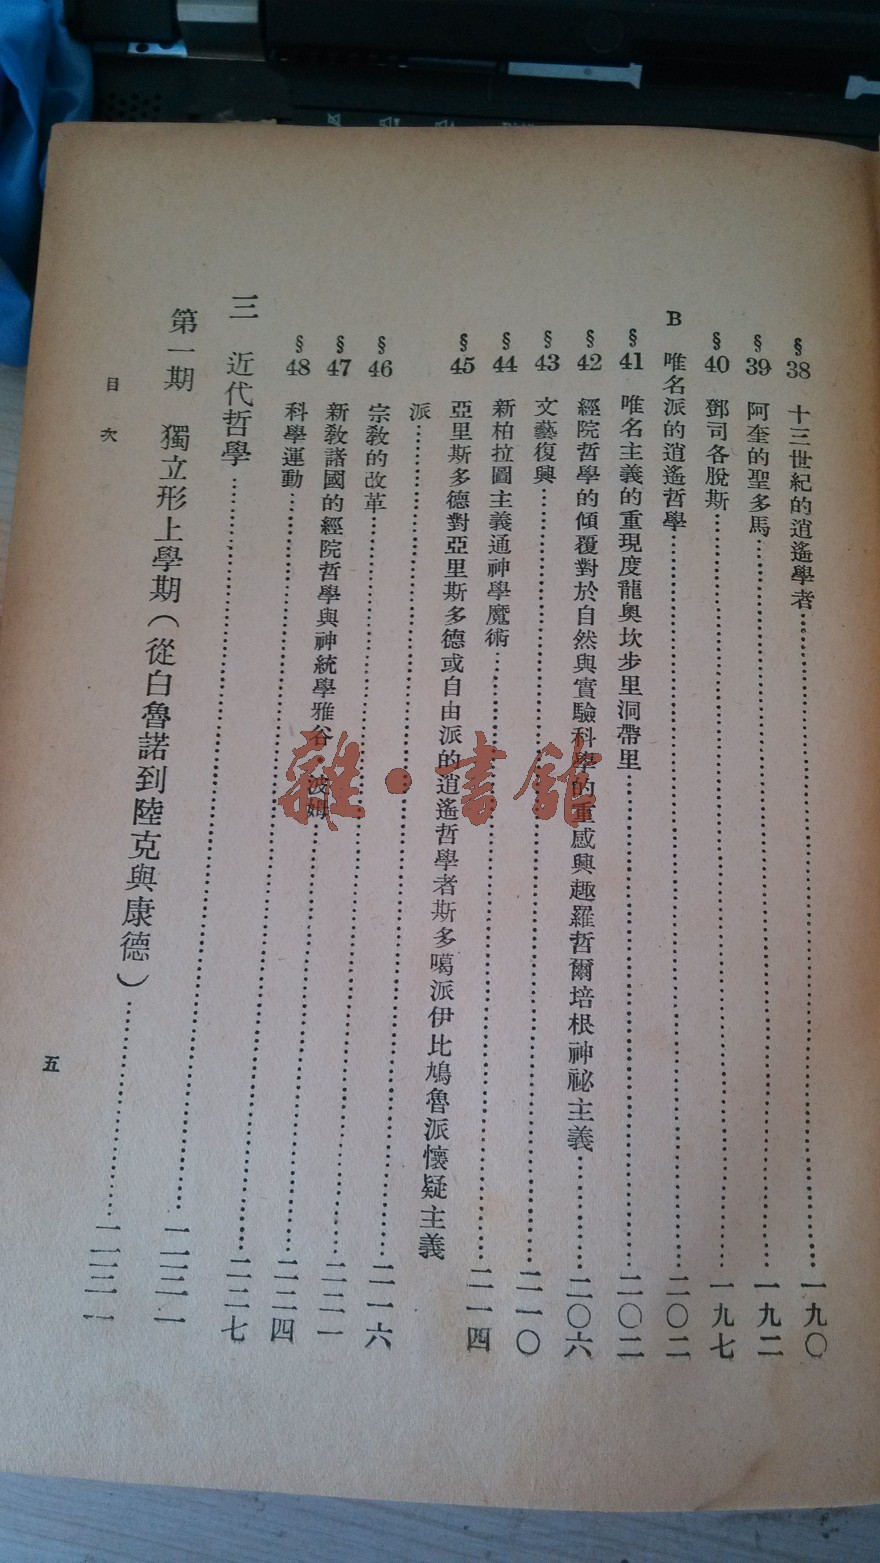 §38 十三世紀的逍遙學者……一九〇
§39 阿奎的聖多馬……一九二
§40 鄧司各脫斯……一九七
B 唯名派的逍遙哲學……二〇二
§41 唯名主義的重現度龍奧坎步里洞帶里……二〇二
§42 經院哲學的傾覆對於自然與實驗科學的重感興趣羅哲爾培根神祕主義……二〇六
§43 文藝復興……二一〇
§44 新柏拉圖主義通神學魔術……二一四
§45 亞里斯多德對亞里斯多德或自由派的逍遙哲學者斯多噶派伊比鳩魯派懷疑主義
派……二一六
§46 宗教的改革……二二一
§47 新教諸國的經院哲學與神統學雅谷 波姆……二二四
§48 科學運動……二二七
三 近代哲學……二三一
第一期 獨立形上學期(從白魯諾到陸克與康德)……二三一
目次
五
雜·書館